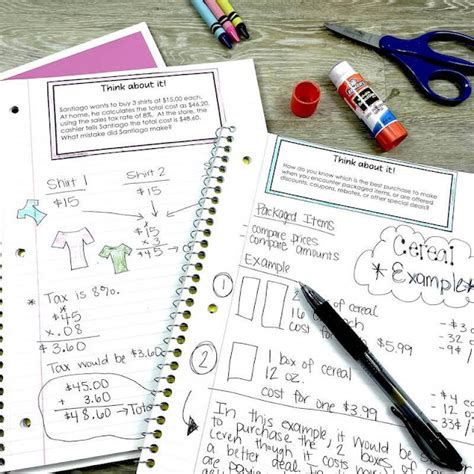 Think about it!
Santiago wants to buy 3 shirts at $15.00 each.
At home, he calculates the total cost as $46.20,
using the sales tax rate of 8%. At the store, the
cashier tells Santiago the total cost is $48.60.
What mistake did Santiago make?
Shirt 1
$15
Shirt 2
$15
$15
x 3
$45
Tax is 8%.
$45
x .08
$3.60
Tax would be $3.60
$45.00
+ 3.60
$48.60 → Total
Think about it!
How do you know which is the best purchase to make
when you encounter packaged items, or are offered
discounts, coupons, rebates, or other special deals?
Packaged Items
compare prices
compare amounts
Example
Cereal
* Example *
1
2 boxes of cereal
16 oz. each
cost for one $5.99
2
1 box of cereal
12 oz.
cost for one $3.
In this example, it would be
to purchase the 2 boxes of
even though it costs
a better deal.
are paying